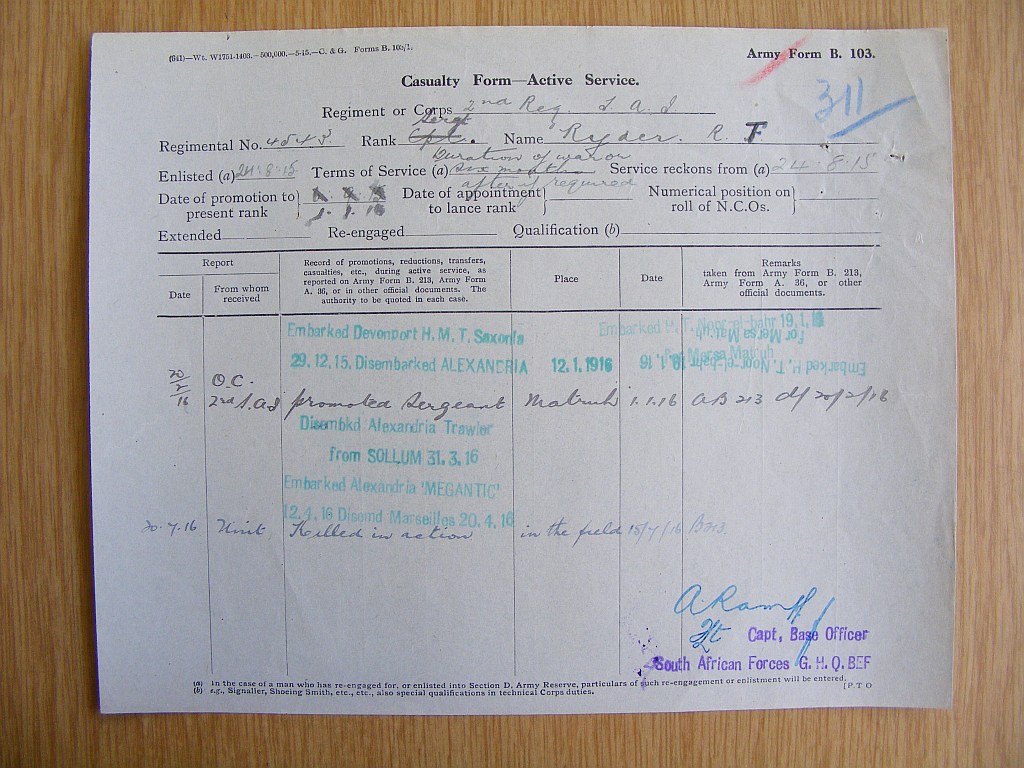 (641)—Wt. W1751-1403.—500,000.—5-15.—C. & G. Forms B. 103/1.
Army Form B. 103.
Casualty Form—Active Service.
311
Regiment or Corps 2nd Reg. S. A. I
Sergt
Regimental No. 4543. Rank Cpl. Name Ryder. R. F.
Duration of war or
Enlisted (a) 24.8.15 Terms of Service (a) six months Service reckons from (a) 24.8.15
after if required
Date of promotion to present rank 1.1.16 Date of appointment to lance rank Numerical position on roll of N.C.Os.
Extended Re-engaged Qualification (b)
Report
Date
From whom received
Record of promotions, reductions, transfers, casualties, etc., during active service, as reported on Army Form B. 213, Army Form A. 36, or in other official documents. The authority to be quoted in each case.
Place
Date
Remarks taken from Army Form B. 213, Army Form A. 36, or other official documents.
Embarked Devonport H. M. T. Saxonia
Embarked H. T. Noor-el-bahr 19.1.16
For Mersa Matruh
29.12.15. Disembarked ALEXANDRIA 12.1.1916
Embarked H. T. Noor-el-bahr 19.1.16
For Mersa Matruh
20/2/16 O.C. 2nd S.A.I promoted Sergeant Matruh 1.1.16 AB 213 d/ 20/2/16
Disembkd Alexandria Trawler
from SOLLUM 31.3.16
Embarked Alexandria 'MEGANTIC'
12.4.16 Disemd Marseilles 20.4.16
20.7.16 Unit Killed in action in the field 15/7/16 B213.
Lt
Capt, Base Officer
South African Forces G. H. Q. BEF
(a) In the case of a man who has re-engaged for, or enlisted into Section D. Army Reserve, particulars of such re-engagement or enlistment will be entered.
(b) e.g., Signaller, Shoeing Smith, etc., etc., also special qualifications in technical Corps duties.
[P.T O